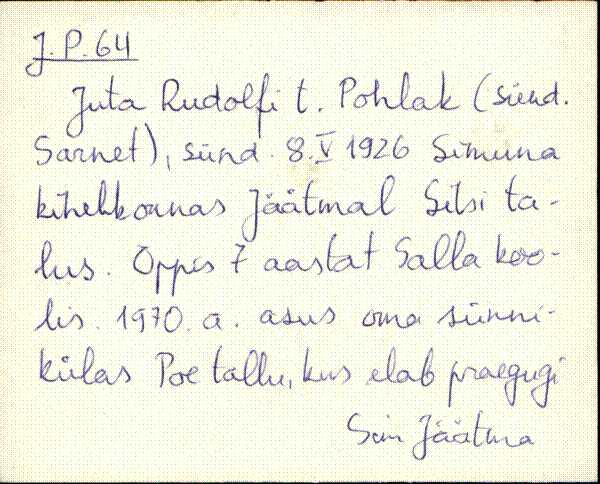 J.P. 64
Juta Rudolfi t. Pohlak (sünd.
Sarnet), sünd. 8. V 1926 Simuna
kihelkonnas Jäätmal Sitsi ta-
lus. Õppis 7 aastat Salla koo-
lis. 1970. a. asus oma sünni-
külas Poe tallu, kus elab praegugi
Jäätma